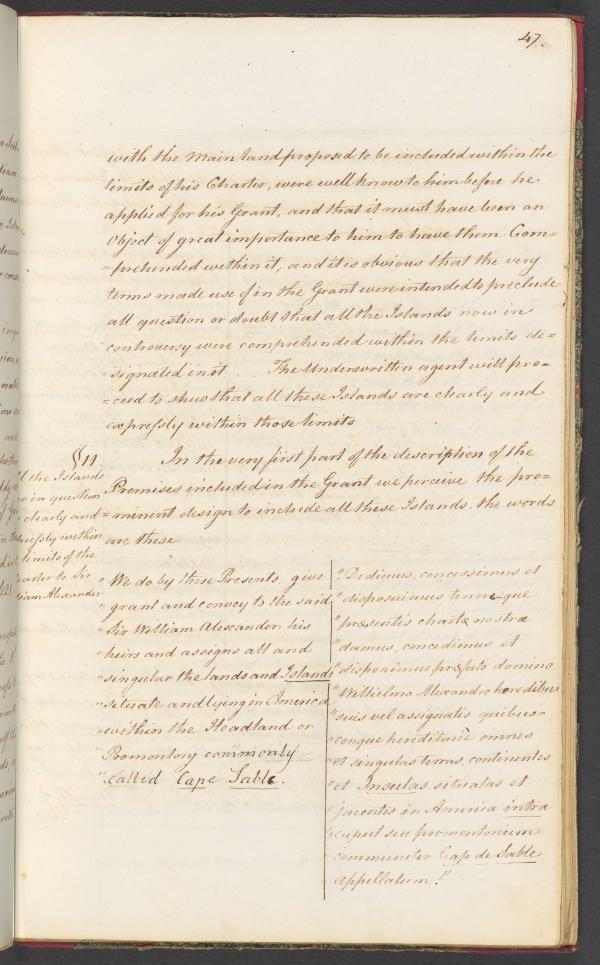 47.
with the Main land proposed to be included within the
limits of his Charter, were well know to him before he
applied for his Grant, and that it must have been an
Object of great importance to him to have them Com=
=prehended within it, and it is obvious that the very
terms made use of in the Grant were intended to preclude
all question or doubt that all the Islands now in
controversy were comprehended within the limits de=
=signated in it. The Underwritten agent will pro=
=ceed to shew that all these Islands are clearly and
expressly within those limits
§11.
In the very first part of the description of the
Premises included in the Grant we perceive the pro=
=minent design to include all these Islands, the words
are these
the Islands
in question
clearly and
within
limits of the
to Sir
Alexander
We do by these Presents, give
" grant and convey to the said
" Sir William Alexander his
" heirs and assigns all and
" singular the lands and Islands
" situate and lying in America
" within the Headland or
" Promontory commonly
" called Cape Sable.
" Dedimus, concessimus et
" disposuimus tenore que
" præsentis chartæ nostræ
" damus, concedimus et
" disponimus præfato domino
" Willielmo Alexandro heredibus
" suis vel assignatis quibus=
" conque hereditarie omnes
" et singulas terras, continentes
" et Insulas situatas et
" jacentis in America intra
" caput seu promontorium
" communiter Cap de Sable
" Appellatum."